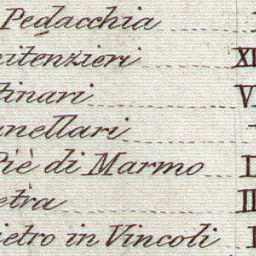 Pedacchia
nitenzieri XI
tinari V
nellari
Piè di Marmo I
etra II
ietro in Vincoli I